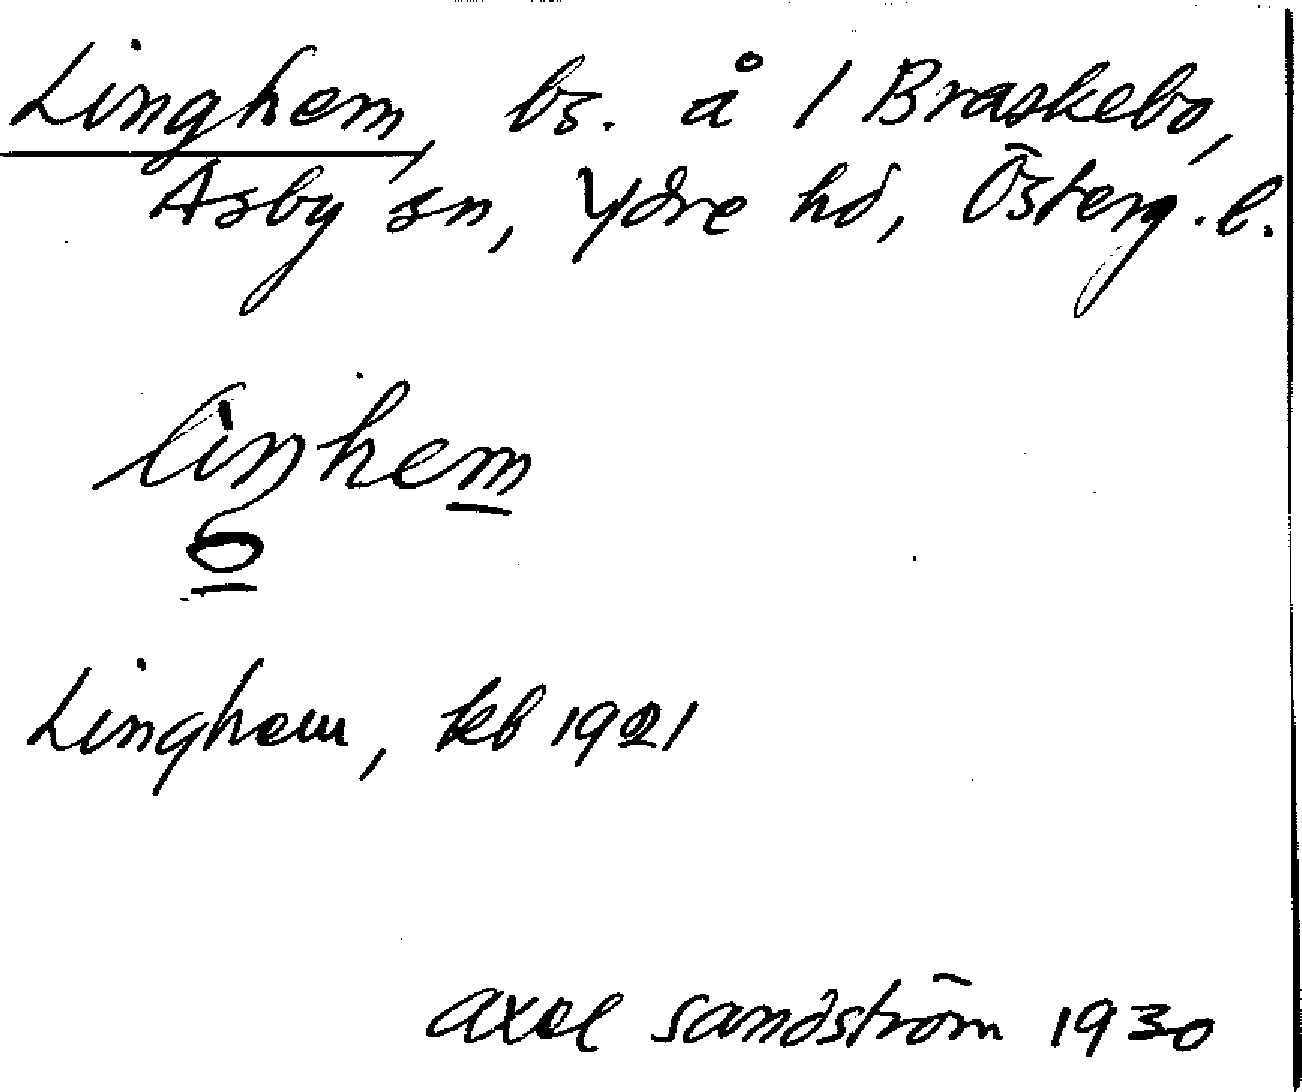 Linghem, bs. å 1 Braskebo,
Asby sn, Ydre hd, Österg. l.
lìŋhem
Linghem, kb 1921
Axel Sandström 1930